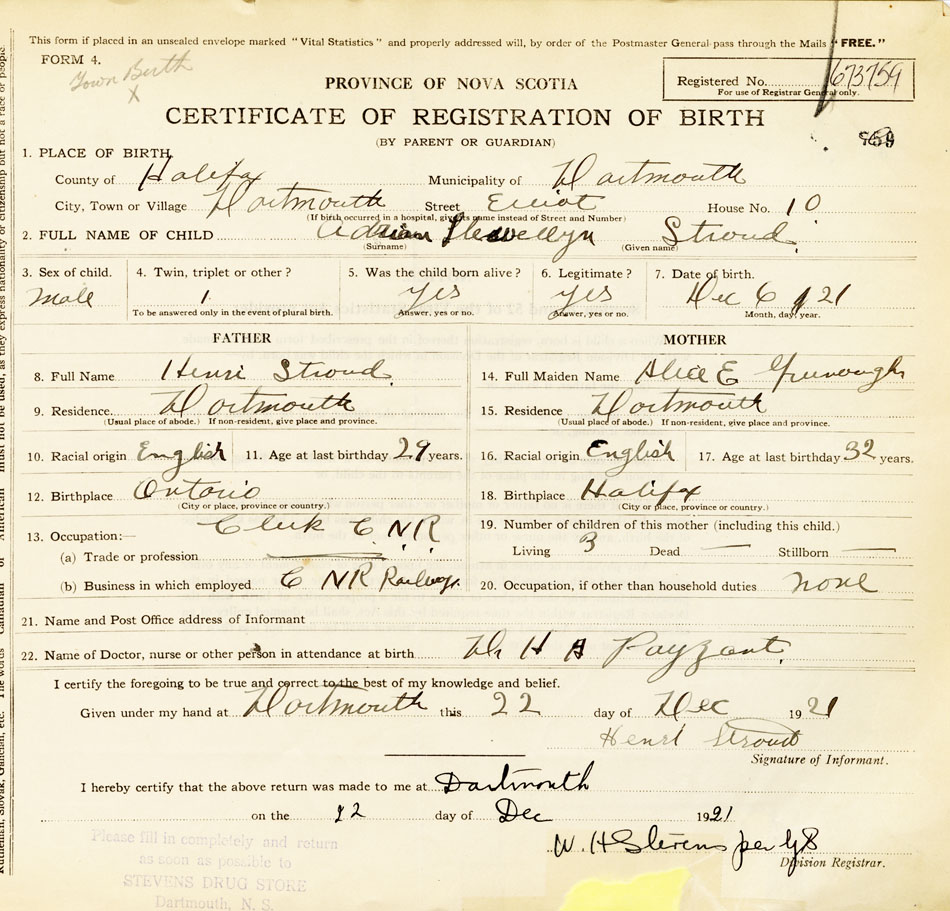 This form if placed in an unsealed envelope marked "Vital Statistics" and properly addressed will, by order of the Postmaster General pass through the Mails "FREE."
FORM 4.
Town Birth
X
PROVINCE OF NOVA SCOTIA
Registered No. 673759
For use of Registrar General only.
CERTIFICATE OF REGISTRATION OF BIRTH
(BY PARENT OR GUARDIAN)
1. PLACE OF BIRTH
County of Halifax Municipality of Dartmouth
City, Town or Village Dartmouth Street Elliot House No. 10
(If birth occurred in a hospital, give its name instead of Street and Number)
2. FULL NAME OF CHILD Adrian Llewellyn Stroud
(Surname) (Given name)
3. Sex of child. 4. Twin, triplet or other? 5. Was the child born alive? 6. Legitimate? 7. Date of birth.
Male 1 yes yes Dec 6 / 21
To be answered only in the event of plural birth. Answer, yes or no. Answer, yes or no. Month, day, year.
FATHER MOTHER
8. Full Name Henri Stroud 14. Full Maiden Name Alice E Greenough
9. Residence. Dartmouth 15. Residence Dartmouth
(Usual place of abode.) If non-resident, give place and province. (Usual place of abode.) If non-resident, give place and province.
10. Racial origin English 11. Age at last birthday 29 years. 16. Racial origin English 17. Age at last birthday 32 years.
12. Birthplace Ontario 18. Birthplace Halifax
(City or place, province or country.) (City or place, province or country.)
13. Occupation:— Clerk C.N.R 19. Number of children of this mother (including this child.)
(a) Trade or profession Living 3 Dead — Stillborn —
(b) Business in which employed C NR Railway. 20. Occupation, if other than household duties none
21. Name and Post Office address of Informant
22. Name of Doctor, nurse or other person in attendance at birth Dr H A Payzant.
I certify the foregoing to be true and correct to the best of my knowledge and belief.
Given under my hand at Dartmouth this 22 day of Dec 1921
Henri Stroud
Signature of Informant.
I hereby certify that the above return was made to me at Dartmouth
on the 22 day of Dec 1921
W. H Stevens per
Division Registrar.
Please fill in completely and return
as soon as possible to
STEVENS DRUG STORE
Dartmouth, N. S.